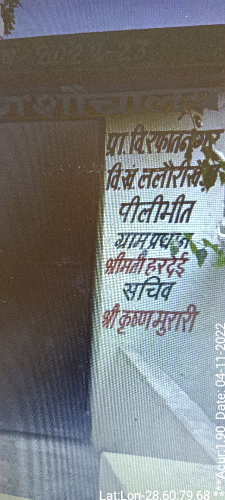 2022-23
शौचालय
प्रा.वि.रफातनगर
वि.खं.ललौरीखेड़ा
पीलीभीत
ग्राम प्रधान
श्रीमती हरदेई
सचिव
श्री कृष्ण मुरारी
Lat:Lon-28.60:79.68
***Acur:1.90 Date: 04-11-2022